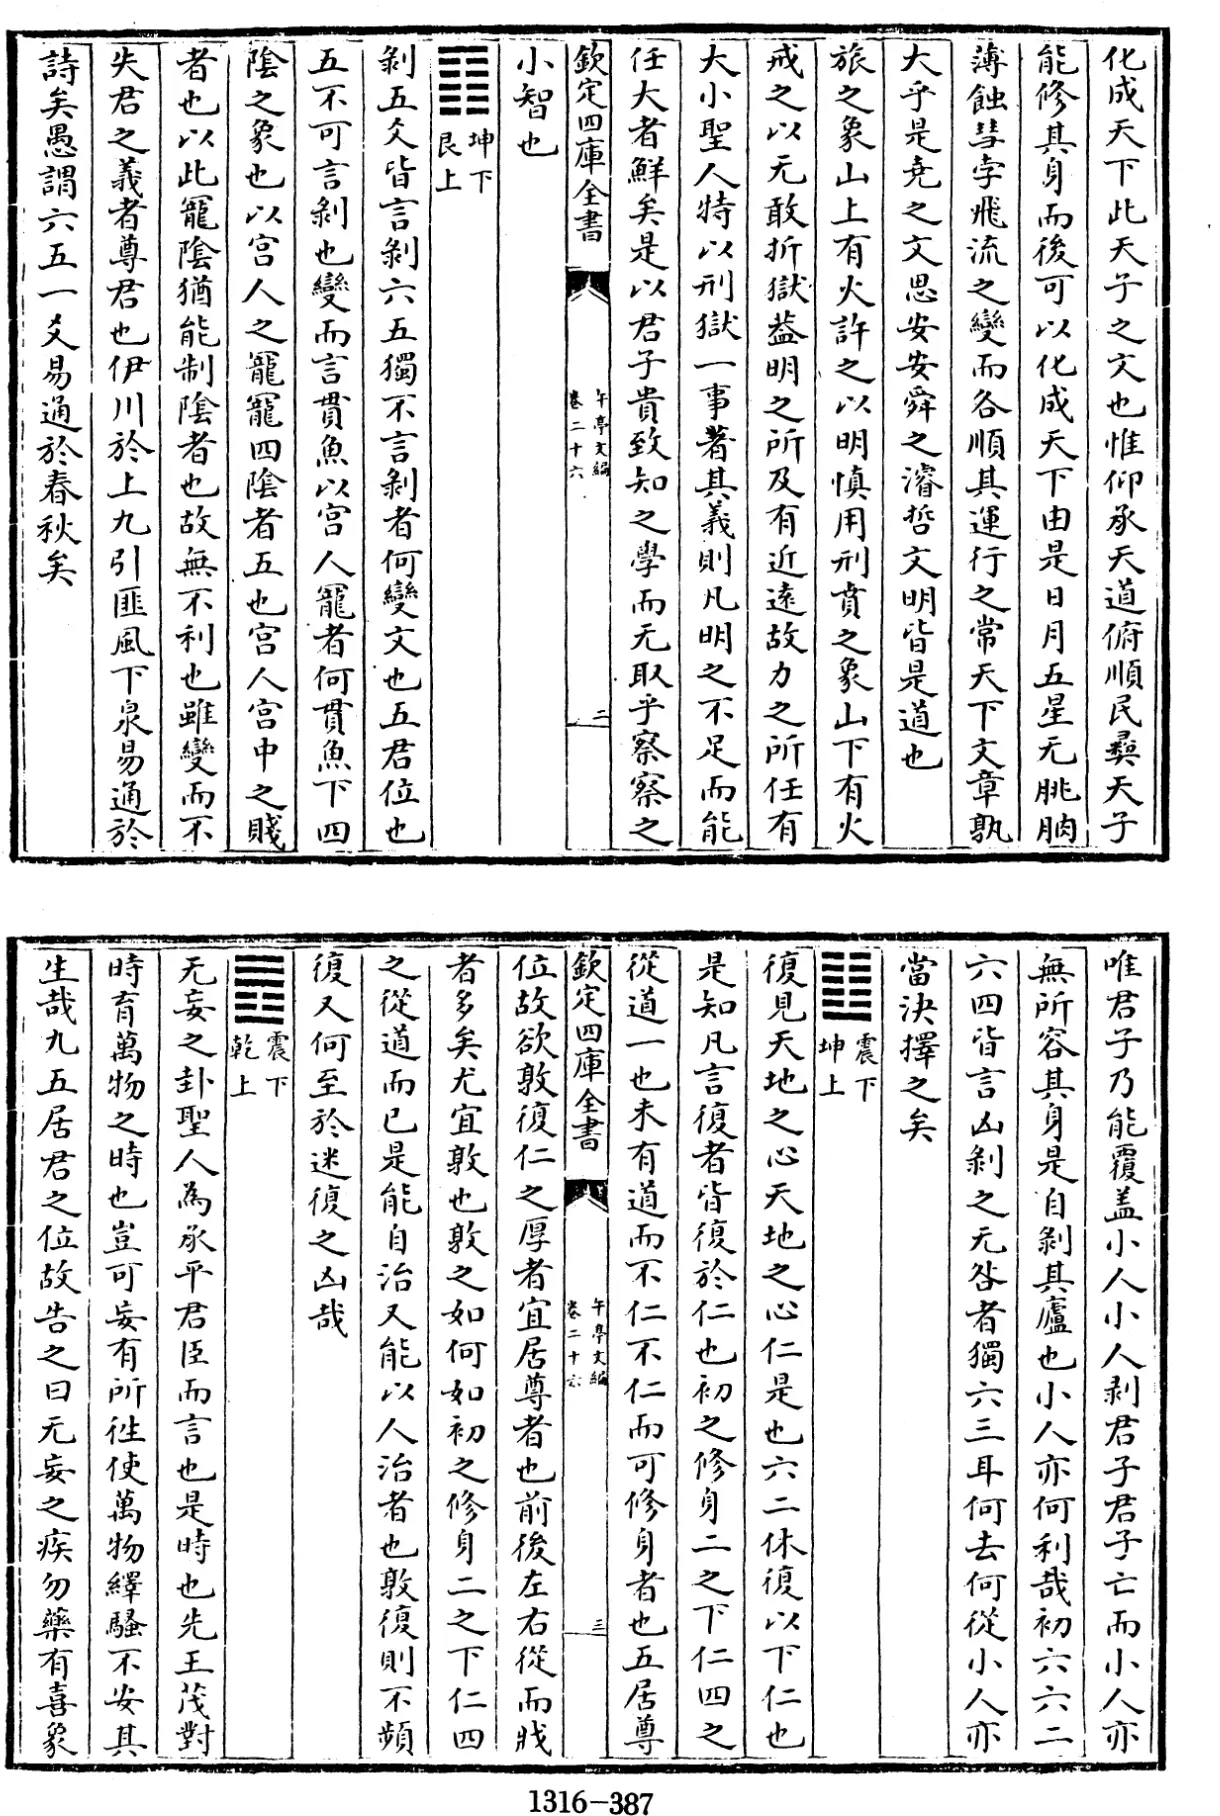 化成天下此天子之文也惟仰承天道俯順民彝天子
能修其身而後可以化成天下由是日月五星无朓朒
薄蝕彗孛飛流之變而各順其運行之常天下文章孰
大乎是堯之文思安安舜之濬哲文明皆是道也
旅之象山上有火許之以明慎用刑賁之象山下有火
戒之以无敢折獄葢明之所及有近遠故力之所任有
大小聖人特以刑獄一事著其義則凡明之不足而能
任大者鮮矣是以君子貴致知之學而无取乎察察之
欽定四庫全書
午亭文編
卷二十六
二
小智也
坤下
艮上
剝五爻皆言剝六五獨不言剝者何變文也五君位也
五不可言剝也變而言貫魚以宫人寵者何貫魚下四
陰之象也以宫人之寵寵四陰者五也宫人宫中之賤
者也以此寵陰猶能制陰者也故無不利也雖變而不
失君之義者尊君也伊川於上九引匪風下泉易通於
詩矣愚謂六五一爻易通於春秋矣
唯君子乃能覆盖小人小人剥君子君子亡而小人亦
無所容其身是自剝其廬也小人亦何利哉初六六二
六四皆言凶剝之无咎者獨六三耳何去何從小人亦
當決擇之矣
震下
坤上
復見天地之心天地之心仁是也六二休復以下仁也
是知凡言復者皆復於仁也初之修身二之下仁四之
從道一也未有道而不仁不仁而可修身者也五居尊
欽定四庫全書
午亭文編
卷二十六
三
位故欲敦復仁之厚者宜居尊者也前後左右從而戕
者多矣尤宜敦也敦之如何如初之修身二之下仁四
之從道而已是能自治又能以人治者也敦復則不頻
復又何至於迷復之凶哉
震下
乾上
无妄之卦聖人為承平君臣而言也是時也先王茂對
時育萬物之時也豈可妄有所徃使萬物繹騷不安其
生哉九五居君之位故告之曰无妄之疾勿藥有喜象
1316-387